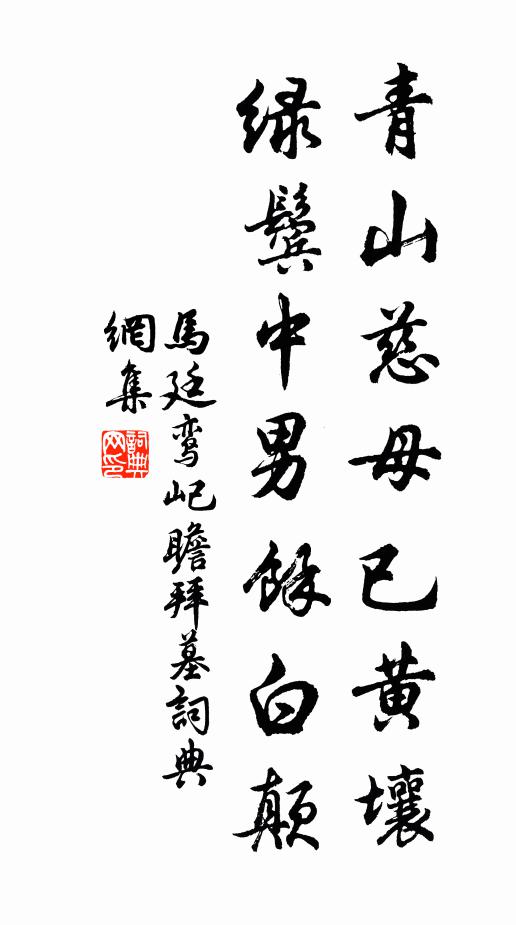 青山慈母已黄壤
绿鬓中男馀白颠
馬廷鸾屺瞻拜墓詞典
網集
詞典
网印